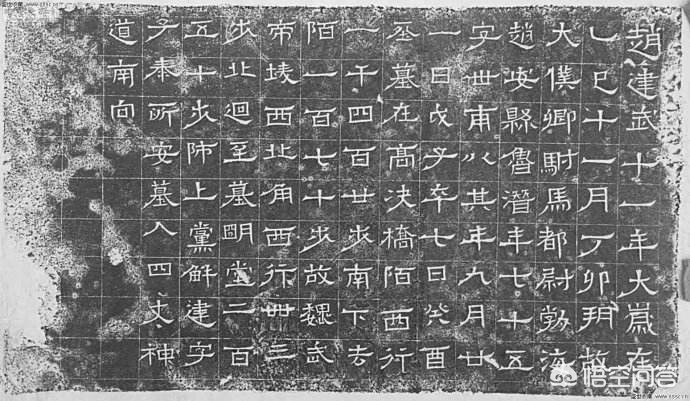 趙建武十一年大歲在
乙巳十一月丁卯朔故
大僕卿駙馬都尉勃海
趙安縣魯潛年七十五
字世甫以其年九月廿
一日戊子卒七日癸酉
葬墓在高決橋陌西行
一千四百廿步南下去
陌一百七十步故魏武
帝陵西北角西行卌三
步北迴至墓明堂二百
五十步師上黨解建字
子奉所安墓入四丈神
道南向
悟空问答